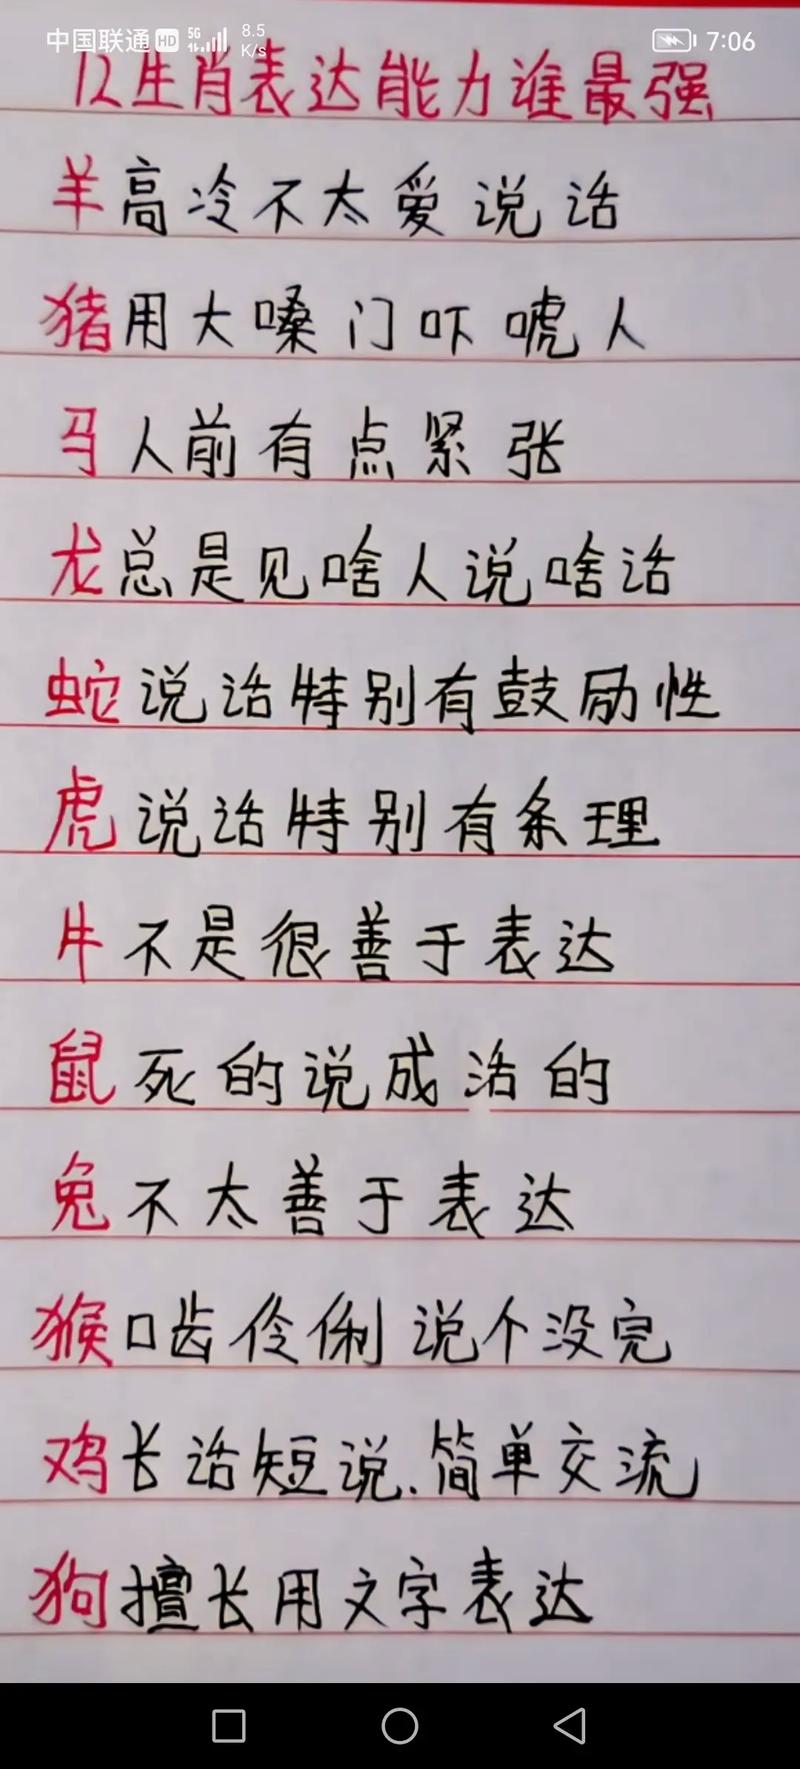 中国联通 HD 5G 8.5 K/s 7:06
12生肖表达能力谁最强
羊高冷不太爱说话
猪用大嗓门吓唬人
马人前有点紧张
龙总是见啥人说啥话
蛇说话特别有鼓励性
虎说话特别有条理
牛不是很善于表达
鼠死的说成活的
兔不太善于表达
猴口齿伶俐说个没完
鸡长话短说.简单交流
狗擅长用文字表达